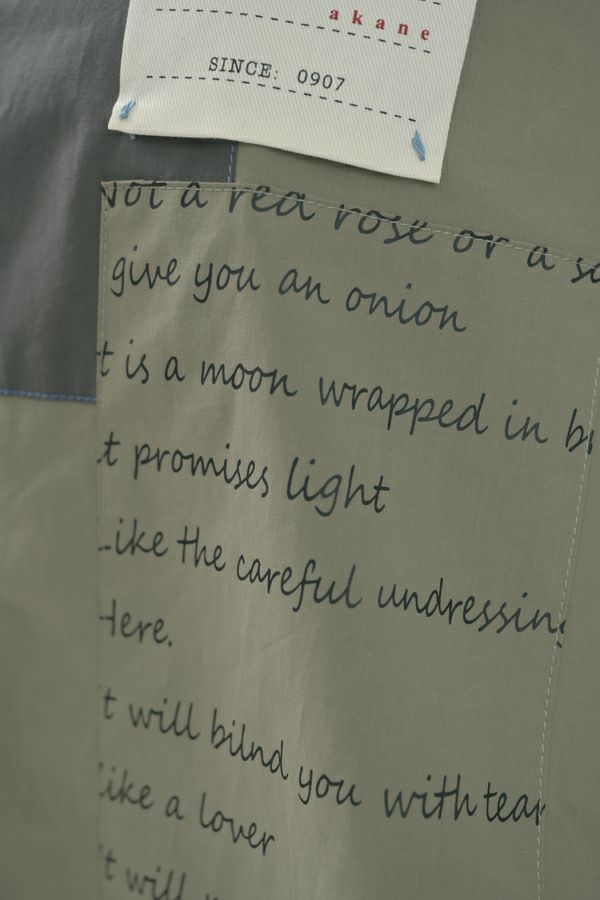 akane
SINCE: 0907
Not a red rose or a
give you an onion
t is a moon wrapped in
t promises light
Like the careful undressing
Here.
t will bilnd you with tear
Like a lover
t will